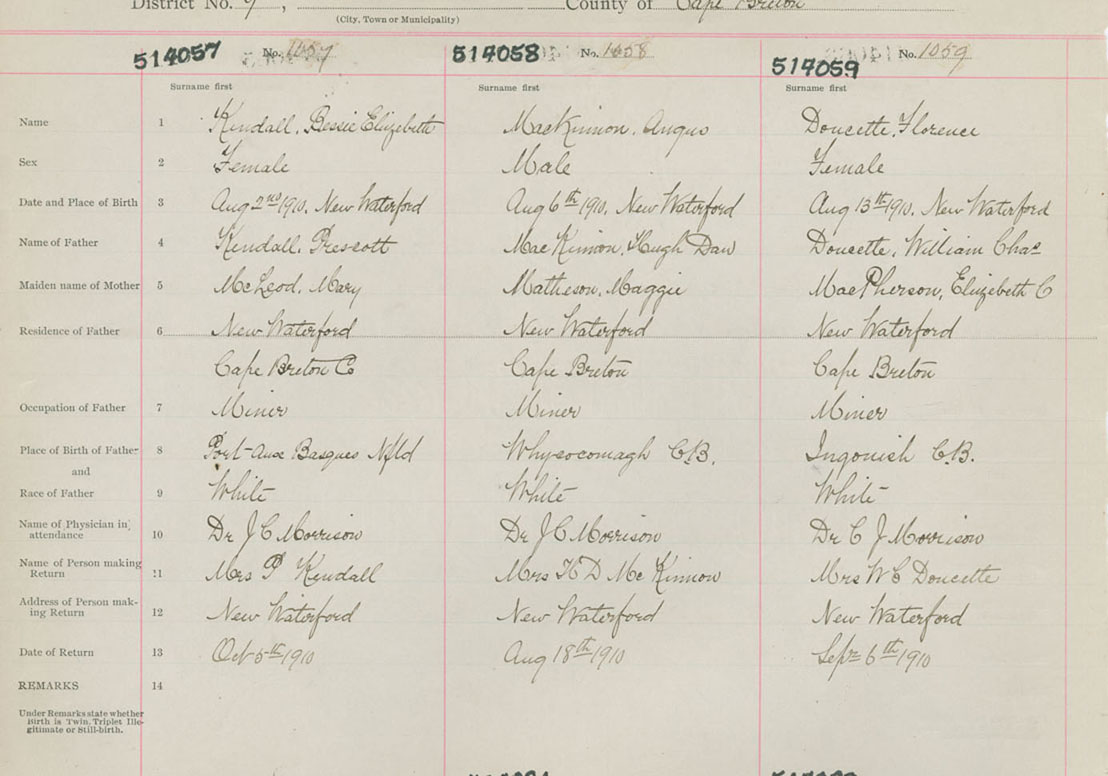 District No. 9, County of Cape Breton
(City, Town or Municipality)
514057 No. 1057 514058 No. 1058 514059 No. 1059
Surname first Surname first Surname first
Name 1 Kendall, Bessie Elizebeth MacKinnon, Angus Doucette, Florence
Sex 2 Female Male Female
Date and Place of Birth 3 Aug 2nd 1910, New Waterford Aug 6th 1910, New Waterford Aug 13th 1910, New Waterford
Name of Father 4 Kendall, Prescott MacKinnon, Hugh Dan Doucette, William Chas
Maiden name of Mother 5 McLeod, Mary Matheson, Maggie MacPherson, Elizebeth C
Residence of Father 6 New Waterford New Waterford New Waterford
Cape Breton Co Cape Breton Cape Breton
Occupation of Father 7 Miner Miner Miner
Place of Birth of Father 8 Port-aux Basques Nfld Whycocomagh C.B. Ingonish C.B.
and
Race of Father 9 White White White
Name of Physician in
attendance 10 Dr J C Morrison Dr J C Morrison Dr C J Morrison
Name of Person making
Return 11 Mrs P Kendall Mrs H D McKinnon Mrs W C Doucette
Address of Person mak-
ing Return 12 New Waterford New Waterford New Waterford
Date of Return 13 Oct 5th 1910 Aug 18th 1910 Sept 6th 1910
REMARKS 14
Under Remarks state whether
Birth is Twin, Triplet Ille-
gitimate or Still-birth.